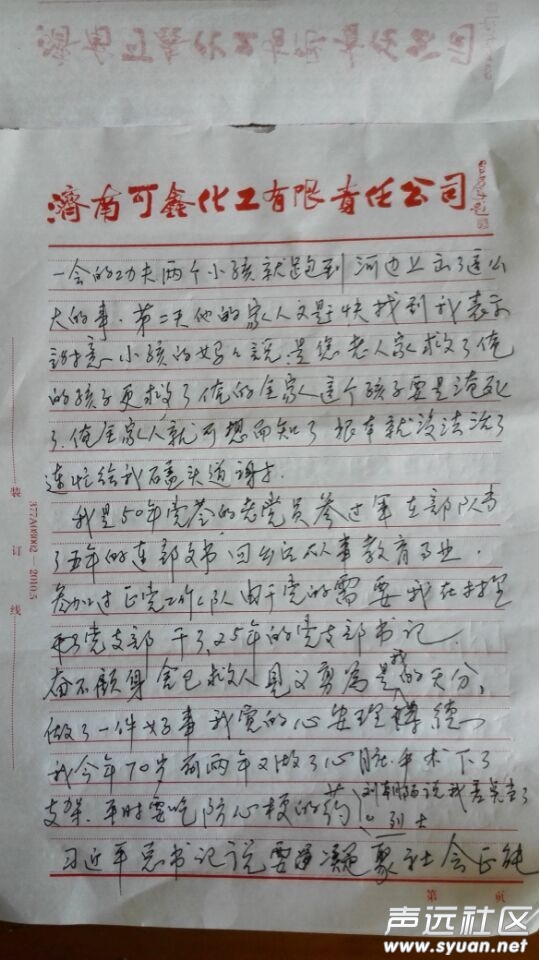 濟南可鑫化工有限责任公司
一会的功夫两个小孩就跑到河边上出了这么
大的事.第二天他的家人文题快找到我表示
谢意小孩的妈妈說是您老人家救了俺
的孩子更救了俺的全家这个孩子要是淹死
了.俺全家人就可想而知了根本就没法活了
连忙给我磕头道谢.
我是50年党龄的老党员参过军在部队当
了五年的连部文书回出后从事教育事业.
参加过正党工作队由于党的需要我在村里
党支部干了25年的党支部书记.
奋不顾身舍己救人見义勇為是我的天分,
做了一件好事我觉的心安理得
我今年70岁前两年又做了心脏手术下了
支架.平时要吃防心梗的药
说我差点当了
烈士
习近平总书记说要凝聚社会正能
装
订
线
377A009002-2010.5
第 页
声远社区
www.syuan.net